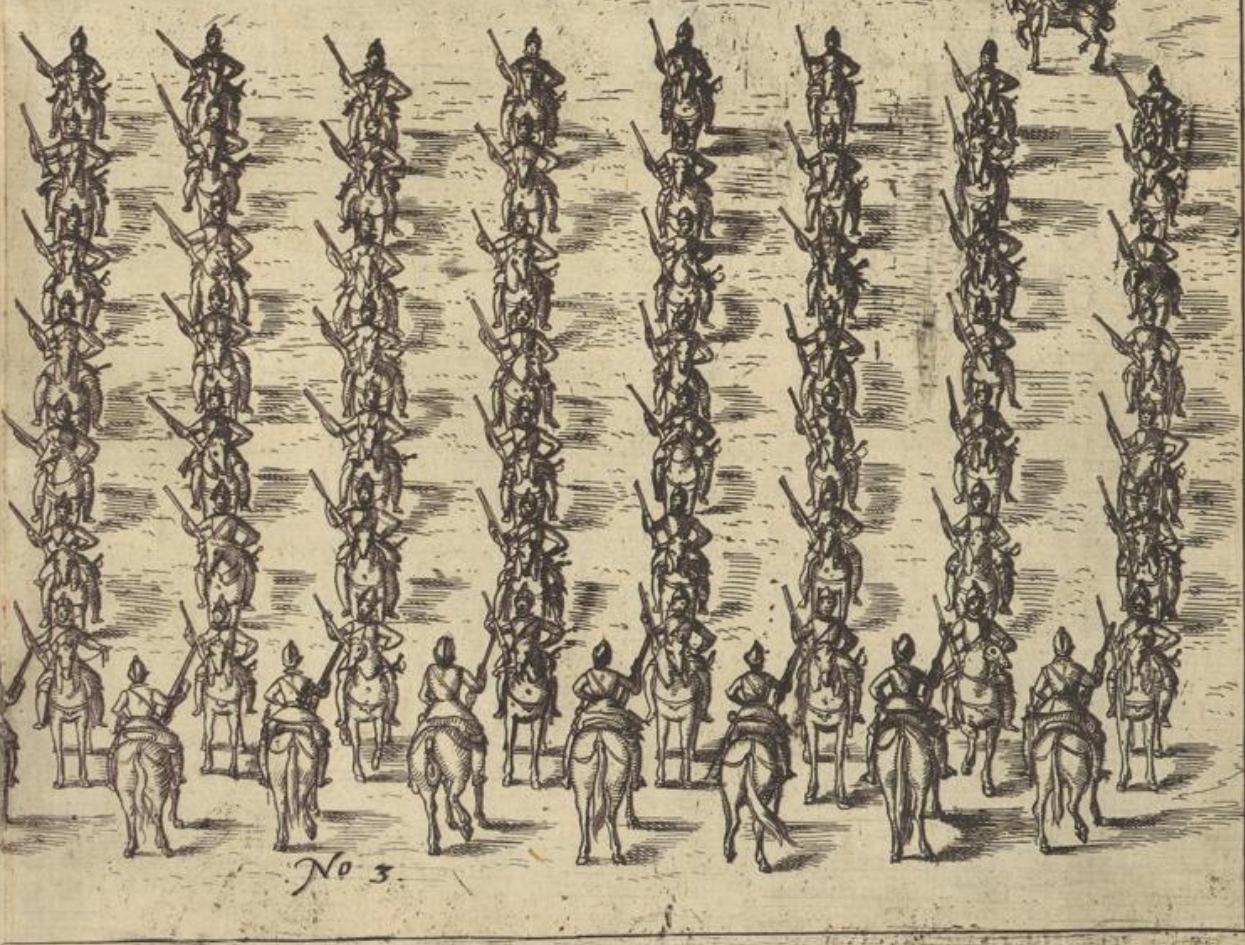 No 3.